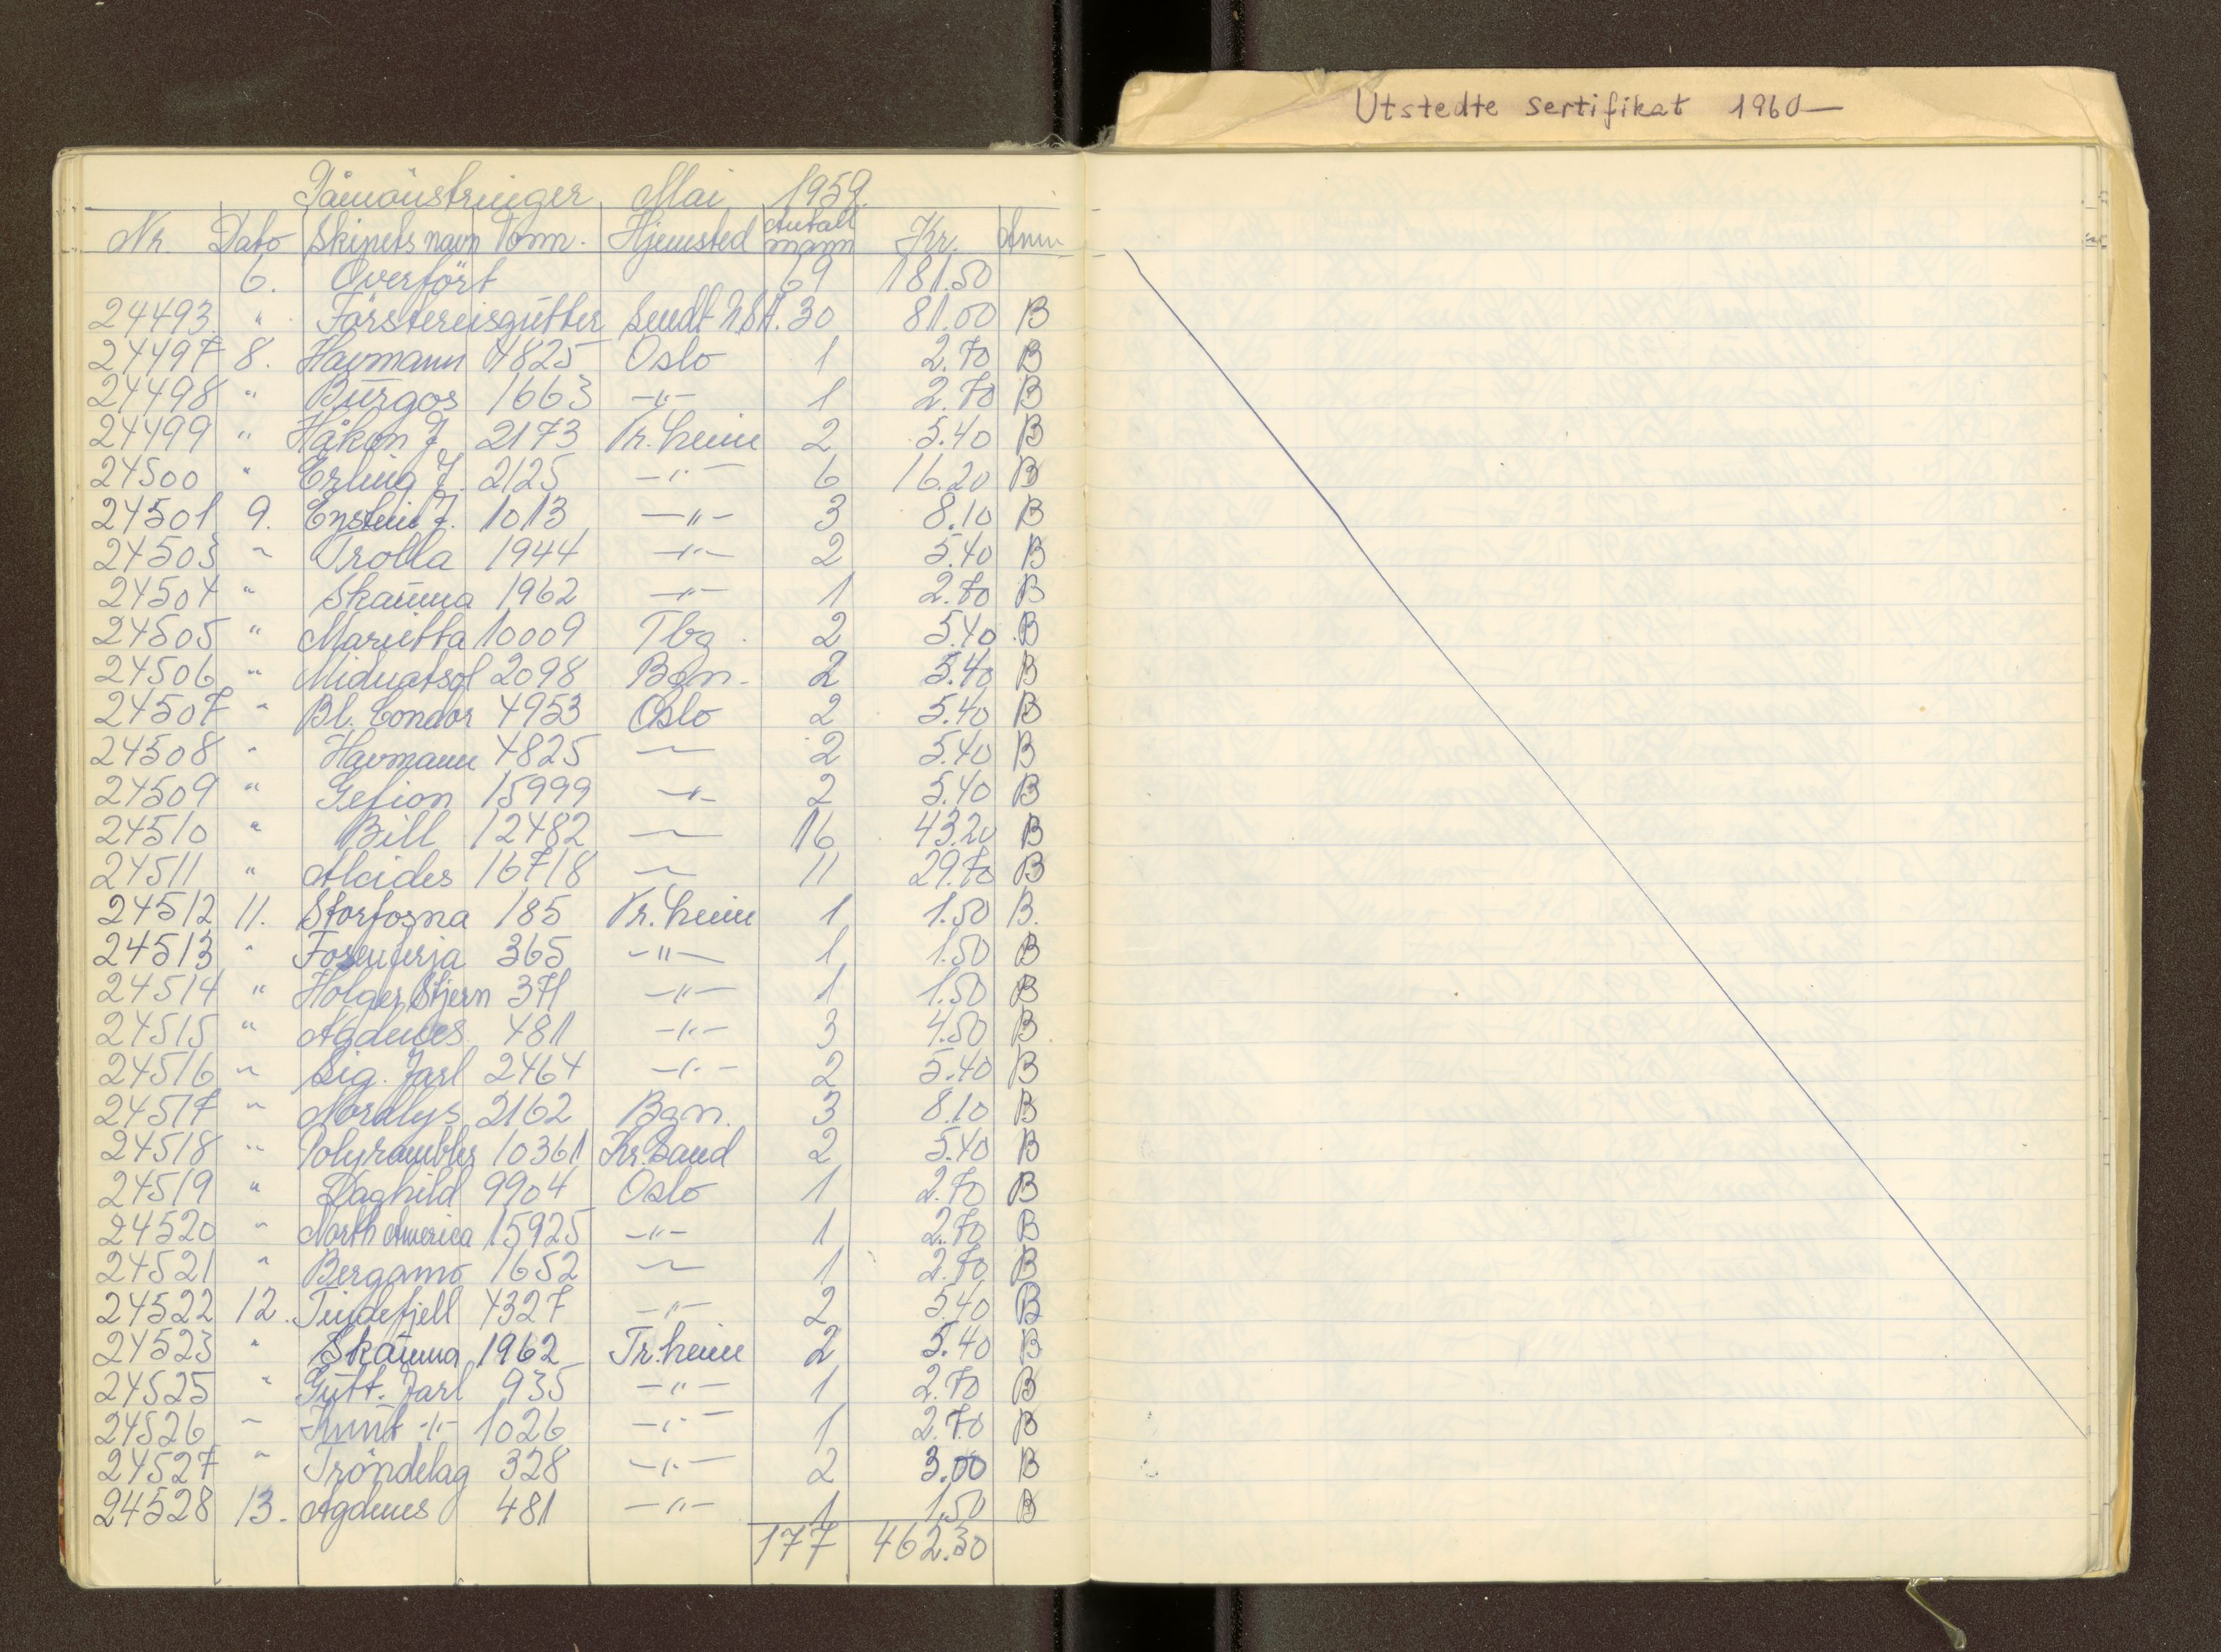 Utstedte sertifikat 1960—
Påmönstringer Mai 1959.
Nr. Dato Skipets navn Tonn. Hjemsted Antall mann Kr. Anm
6. Overfört 69 181.50
24493 " Förstereisgutter Sendt 30 81.00 B
24497 8. Havmann 4825 Oslo 1 2.70 B
24498 " Burgos 1663 -"- 1 2.70 B
24499 " Håkon J. 2173 Tr.heim 2 5.40 B
24500 " Erling J. 2125 -"- 6 16.20 B
24501 9. Eystein J. 1013 -"- 3 8.10 B
24503 " Trolla 1944 -"- 2 5.40 B
24504 " Skaunna 1962 -"- 1 2.70 B
24505 " Marietta 10009 Tbg. 2 5.40 B
24506 " Midnatsol 2098 Bgn. 2 5.40 B
24507 " Bl. Condor 4953 Oslo 2 5.40 B
24508 " Havmann 4825 -"- 2 5.40 B
24509 " Gefion 15999 -"- 2 5.40 B
24510 " Bill 12482 -"- 16 43.20 B
24511 " Alcides 16718 -"- 11 29.70 B
24512 11. Storfosna 185 Tr.heim 1 1.50 B.
24513 " Fosenferja 365 -"- 1 1.50 B
24514 " Holger Stjern 371 -"- 1 1.50 B
24515 " Agdenes 481 -"- 3 4.50 B
24516 " Sig. Jarl 2464 -"- 2 5.40 B
24517 " Nordlys 2162 Bgn. 3 8.10 B
24518 " Polyrambler 10361 Kr.Sand 2 5.40 B
24519 " Daghild 9904 Oslo 1 2.70 B
24520 " North America 15925 -"- 1 2.70 B
24521 " Bergamo 1652 -"- 1 2.70 B
24522 12. Tindefjell 4327 -"- 2 5.40 B
24523 " Skaunna 1962 Tr.heim 2 5.40 B
24525 " Gutt. Jarl 935 -"- 1 2.70 B
24526 " Knut -"- 1026 -"- 1 2.70 B
24527 " Tröndelag 328 -"- 2 3.00 B
24528 13. Agdenes 481 -"- 1 1.50 B
177 462.30